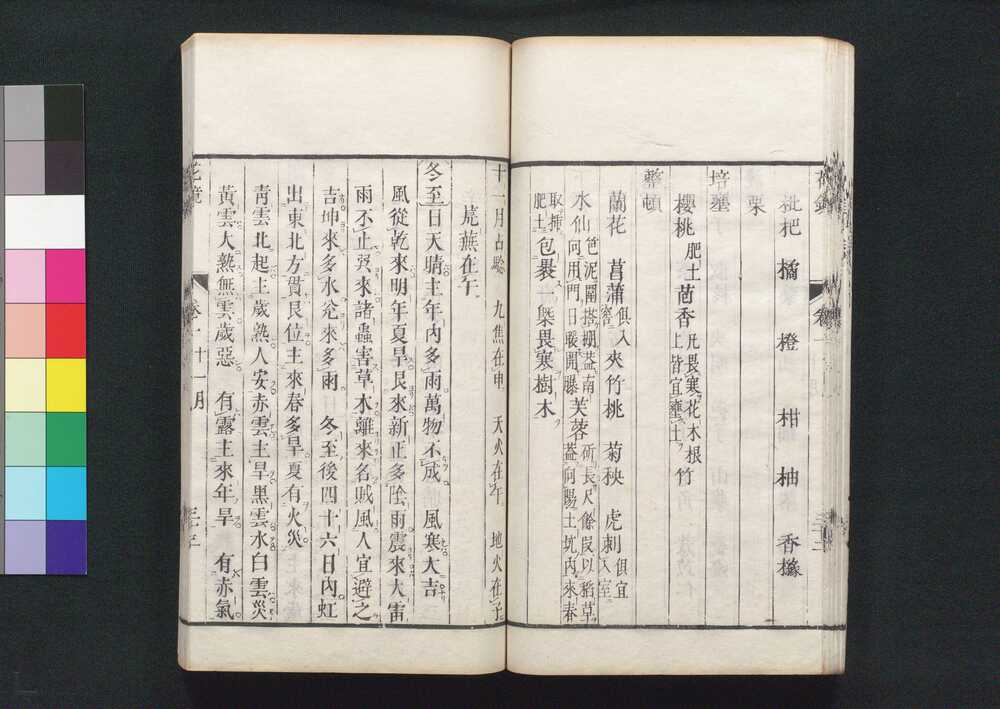 枇杷 橘 橙 柑 柚 香櫞
栗
培壅
櫻桃 肥土 茴香 凡畏寒花木根上皆宜壅土 竹
整頓
蘭花 菖蒲 俱入窖 夾竹桃 菊秧 虎刺 俱宜入室
水仙 笆泥圍搭棚葢南向用門日暖開曝 芙蓉 斫長尺餘叚以稻草葢向陽土坑內來春
取挿肥土 包裹一槩畏寒樹木
十一月占驗 九焦在申 天火在午 地火在子
荒蕪在午
冬至日天晴主年內多雨萬物不成 風寒大吉
風從乾來明年夏旱艮來新正多陰雨震來大雷
雨不止巽來諸蟲害草木離來名賊風人宜避之
吉坤來多水兊來多雨 冬至後四十六日內虹
出東北方貫艮位主來春多旱夏有火災
靑雲北起主歲熟人安赤雲主旱黑雲水白雲災
黃雲大熟無雲歲惡 有露主來年旱 有赤氣
花鏡 卷一 十一月